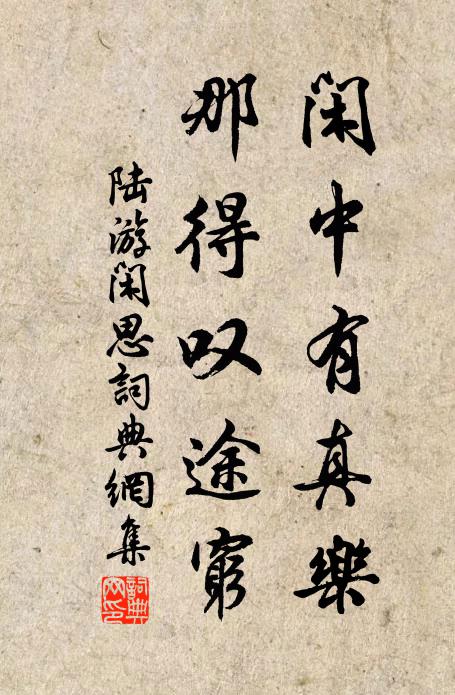 闲中有真樂
那得叹途窮
陆游闲思詞典網集
詞典网印